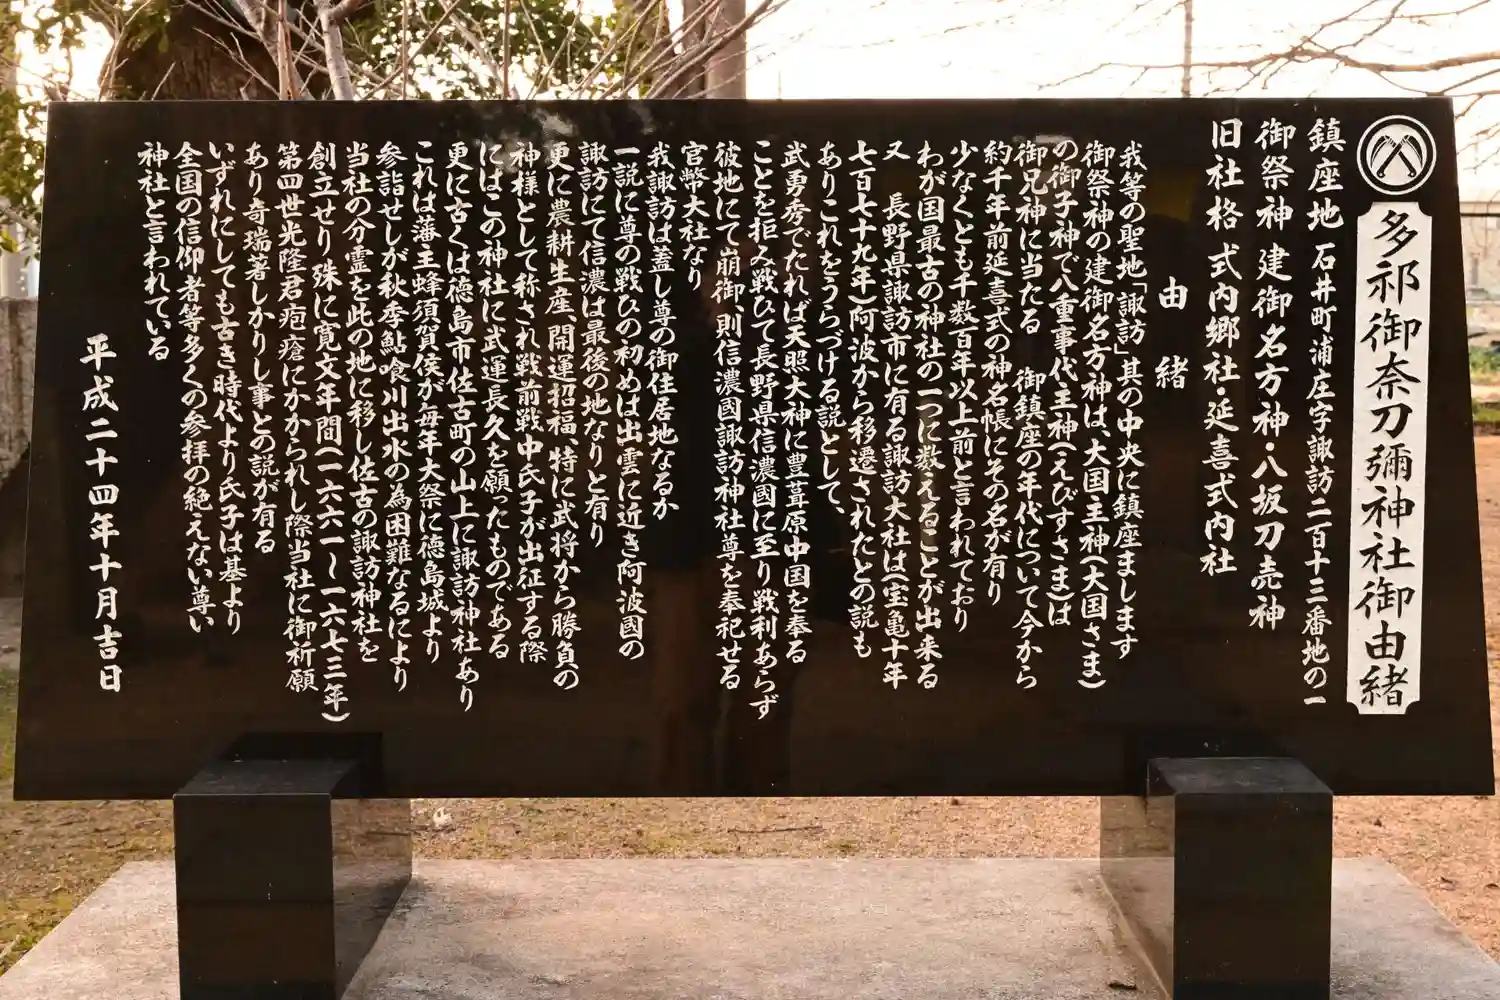 多祁御奈刀彌神社御由緒
鎮座地 石井町浦庄字諏訪二百十三番地の一
御祭神 建御名方神・八坂刀売神
旧社格 式内郷社・延喜式内社
由緒
我等の聖地「諏訪」其の中央に鎮座まします
御祭神の建御名方神は、大国主神(大国さま)
の御子神で八重事代主神(えびすさま)は
御兄神に当たる 御鎮座の年代について今から
約千年前延喜式の神名帳にその名が有り
少なくとも千数百年以上前と言われており
わが国最古の神社の一つに数えることが出来る
又 長野県諏訪市に有る諏訪大社は(宝亀十年
七百七十九年)阿波から移遷されたとの説も
ありこれをうらづける説として、
武勇秀でたれば天照大神に豊葺原中国を奉る
ことを拒み戦ひて長野県信濃國に至り戦利あらず
彼地にて崩御、則信濃國諏訪神社尊を奉祀せる
官幣大社なり
我諏訪は蓋し尊の御住居地なるか
一説に尊の戦ひの初めは出雲に近き阿波國の
諏訪にて信濃は最後の地なりと有り
更に農耕生産、開運招福、特に武将から勝負の
神様として称され戦前戦中氏子が出征する際
にはこの神社に武運長久を願ったものである
更に古くは徳島市佐古町の山上に諏訪神社あり
これは藩主蜂須賀侯が毎年大祭に徳島城より
参詣せしが秋季鮎喰川出水の為困難なるにより
当社の分霊を此の地に移し佐古の諏訪神社を
創立せり殊に寛文年間(一六六一〜一六七三年)
第四世光隆君疱瘡にかかられし際当社に御祈願
あり奇瑞著しかりし事との説が有る
いずれにしても古き時代より氏子は基より
全国の信仰者等多くの参拝の絶えない尊い
神社と言われている
平成二十四年十月吉日